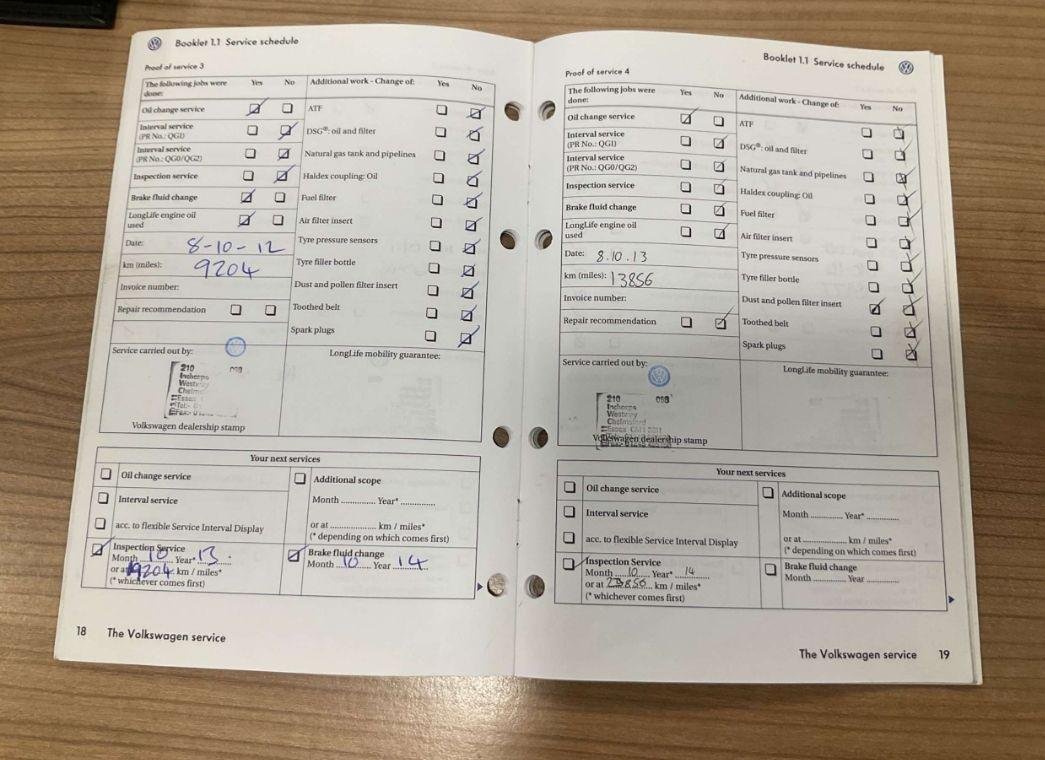 Booklet 1.1 Service schedule
Proof of service 3
The following jobs were done: Yes No
Oil change service
Interval service
(PR No.: QG1)
Interval service
(PR No.: QG0/QG2)
Inspection service
Brake fluid change
LongLife engine oil used
Date: 8-10-12
km (miles): 9204
Invoice number:
Repair recommendation
Additional work - Change of: Yes No
ATF
DSG®: oil and filter
Natural gas tank and pipelines
Haldex coupling: Oil
Fuel filter
Air filter insert
Tyre pressure sensors
Tyre filler bottle
Dust and pollen filter insert
Toothed belt
Spark plugs
Service carried out by:
210 098
Inchcape
Westway
Essex
Volkswagen dealership stamp
LongLife mobility guarantee:
Your next services
Oil change service
Interval service
acc. to flexible Service Interval Display
Inspection Service
Month 10 Year* 13.
or at 19204 km / miles*
(* whichever comes first)
Additional scope
Month .............. Year* ..............
or at ................... km / miles*
(* depending on which comes first)
Brake fluid change
Month 10 Year 14
18 The Volkswagen service
Booklet 1.1 Service schedule
Proof of service 4
The following jobs were done: Yes No
Oil change service
Interval service
(PR No.: QG1)
Interval service
(PR No.: QG0/QG2)
Inspection service
Brake fluid change
LongLife engine oil used
Date: 8.10.13
km (miles): 13856
Invoice number:
Repair recommendation
Additional work - Change of: Yes No
ATF
DSG®: oil and filter
Natural gas tank and pipelines
Haldex coupling: Oil
Fuel filter
Air filter insert
Tyre pressure sensors
Tyre filler bottle
Dust and pollen filter insert
Toothed belt
Spark plugs
Service carried out by:
210 098
Inchcape
Westway
Chelmsford
Essex
Volkswagen dealership stamp
LongLife mobility guarantee:
Your next services
Oil change service
Interval service
acc. to flexible Service Interval Display
Inspection Service
Month 10 Year* 14
or at 23856 km / miles*
(* whichever comes first)
Additional scope
Month .............. Year* ..............
or at ................... km / miles*
(* depending on which comes first)
Brake fluid change
Month .............. Year ..............
The Volkswagen service 19